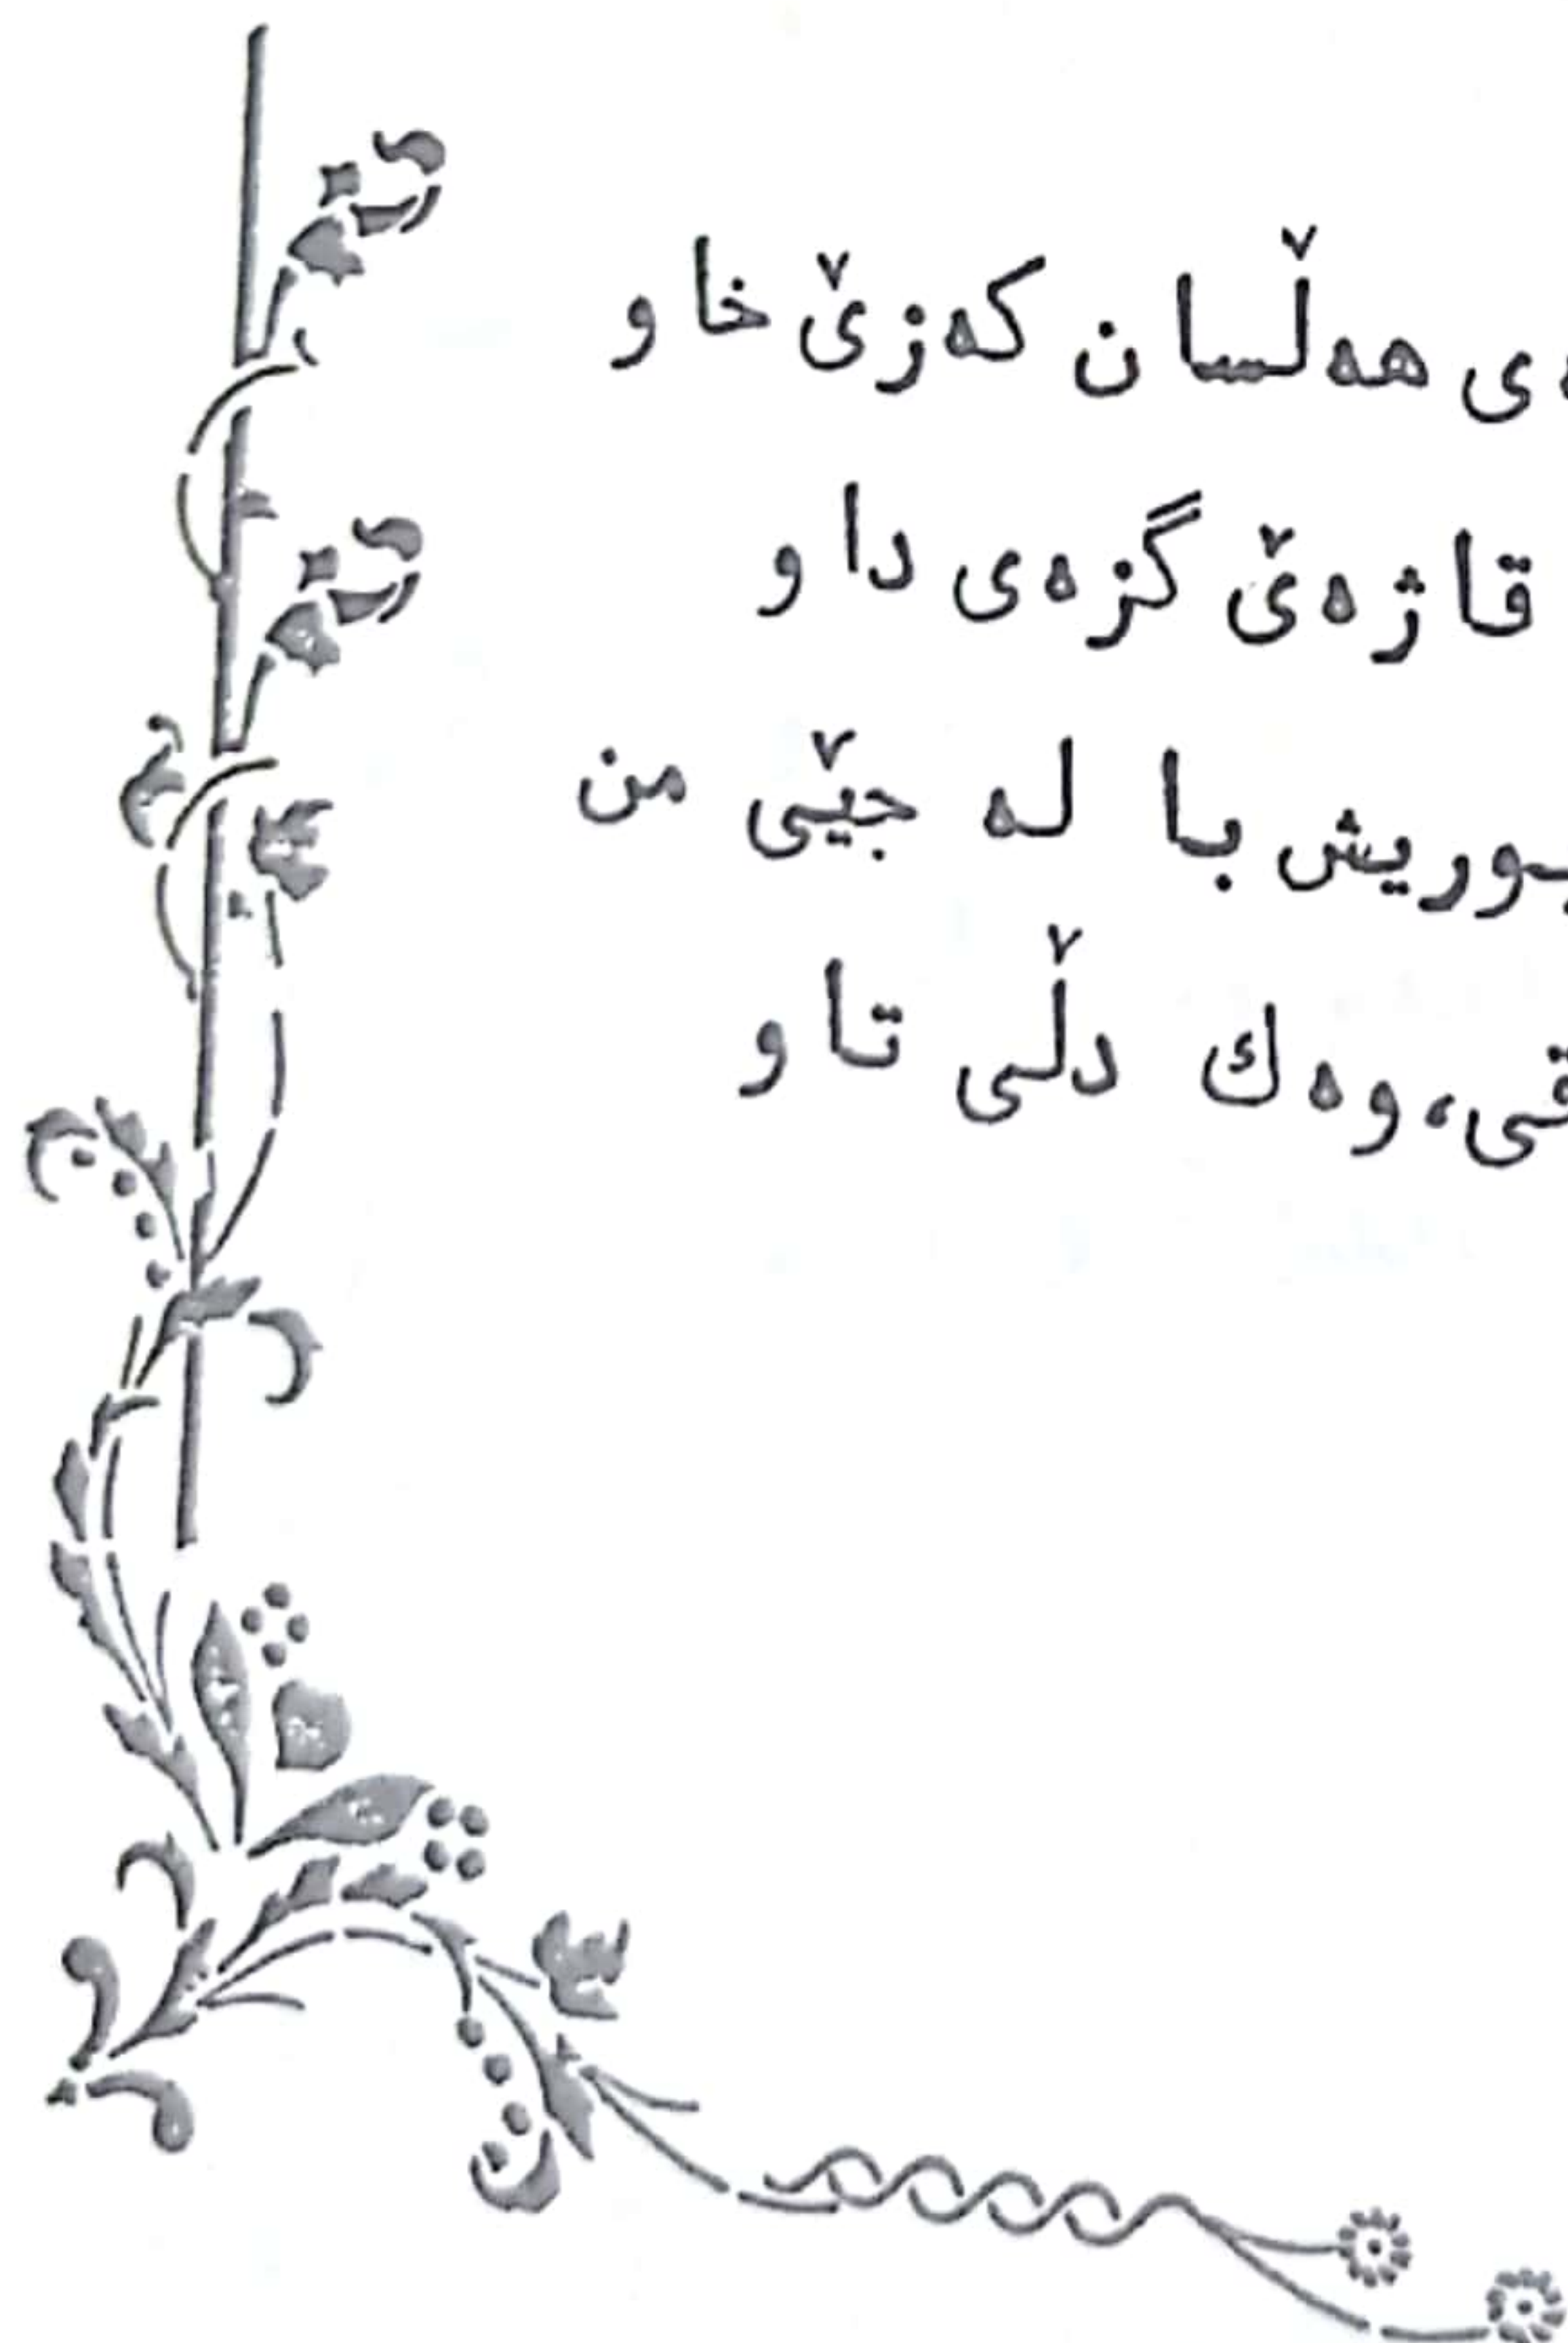 ی هەڵسان کەزێ خاو
قاژەێ گزەی داو
با لە جێی من
وەك دڵی تاو